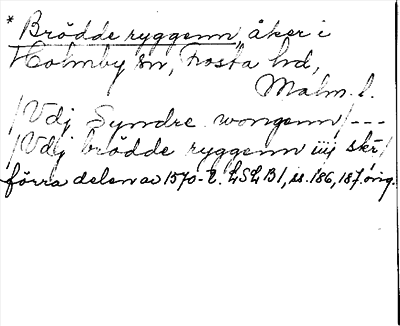 * Brödde ryggenn, åker i
Holmby sn, Frosta hd,
Malm. l.
/Vdj Syndre wongenn/---
/Vdj brödde ryggenn iiij skr/
förra delen av 1570-t. LSLB1, s. 186, 187. orig.